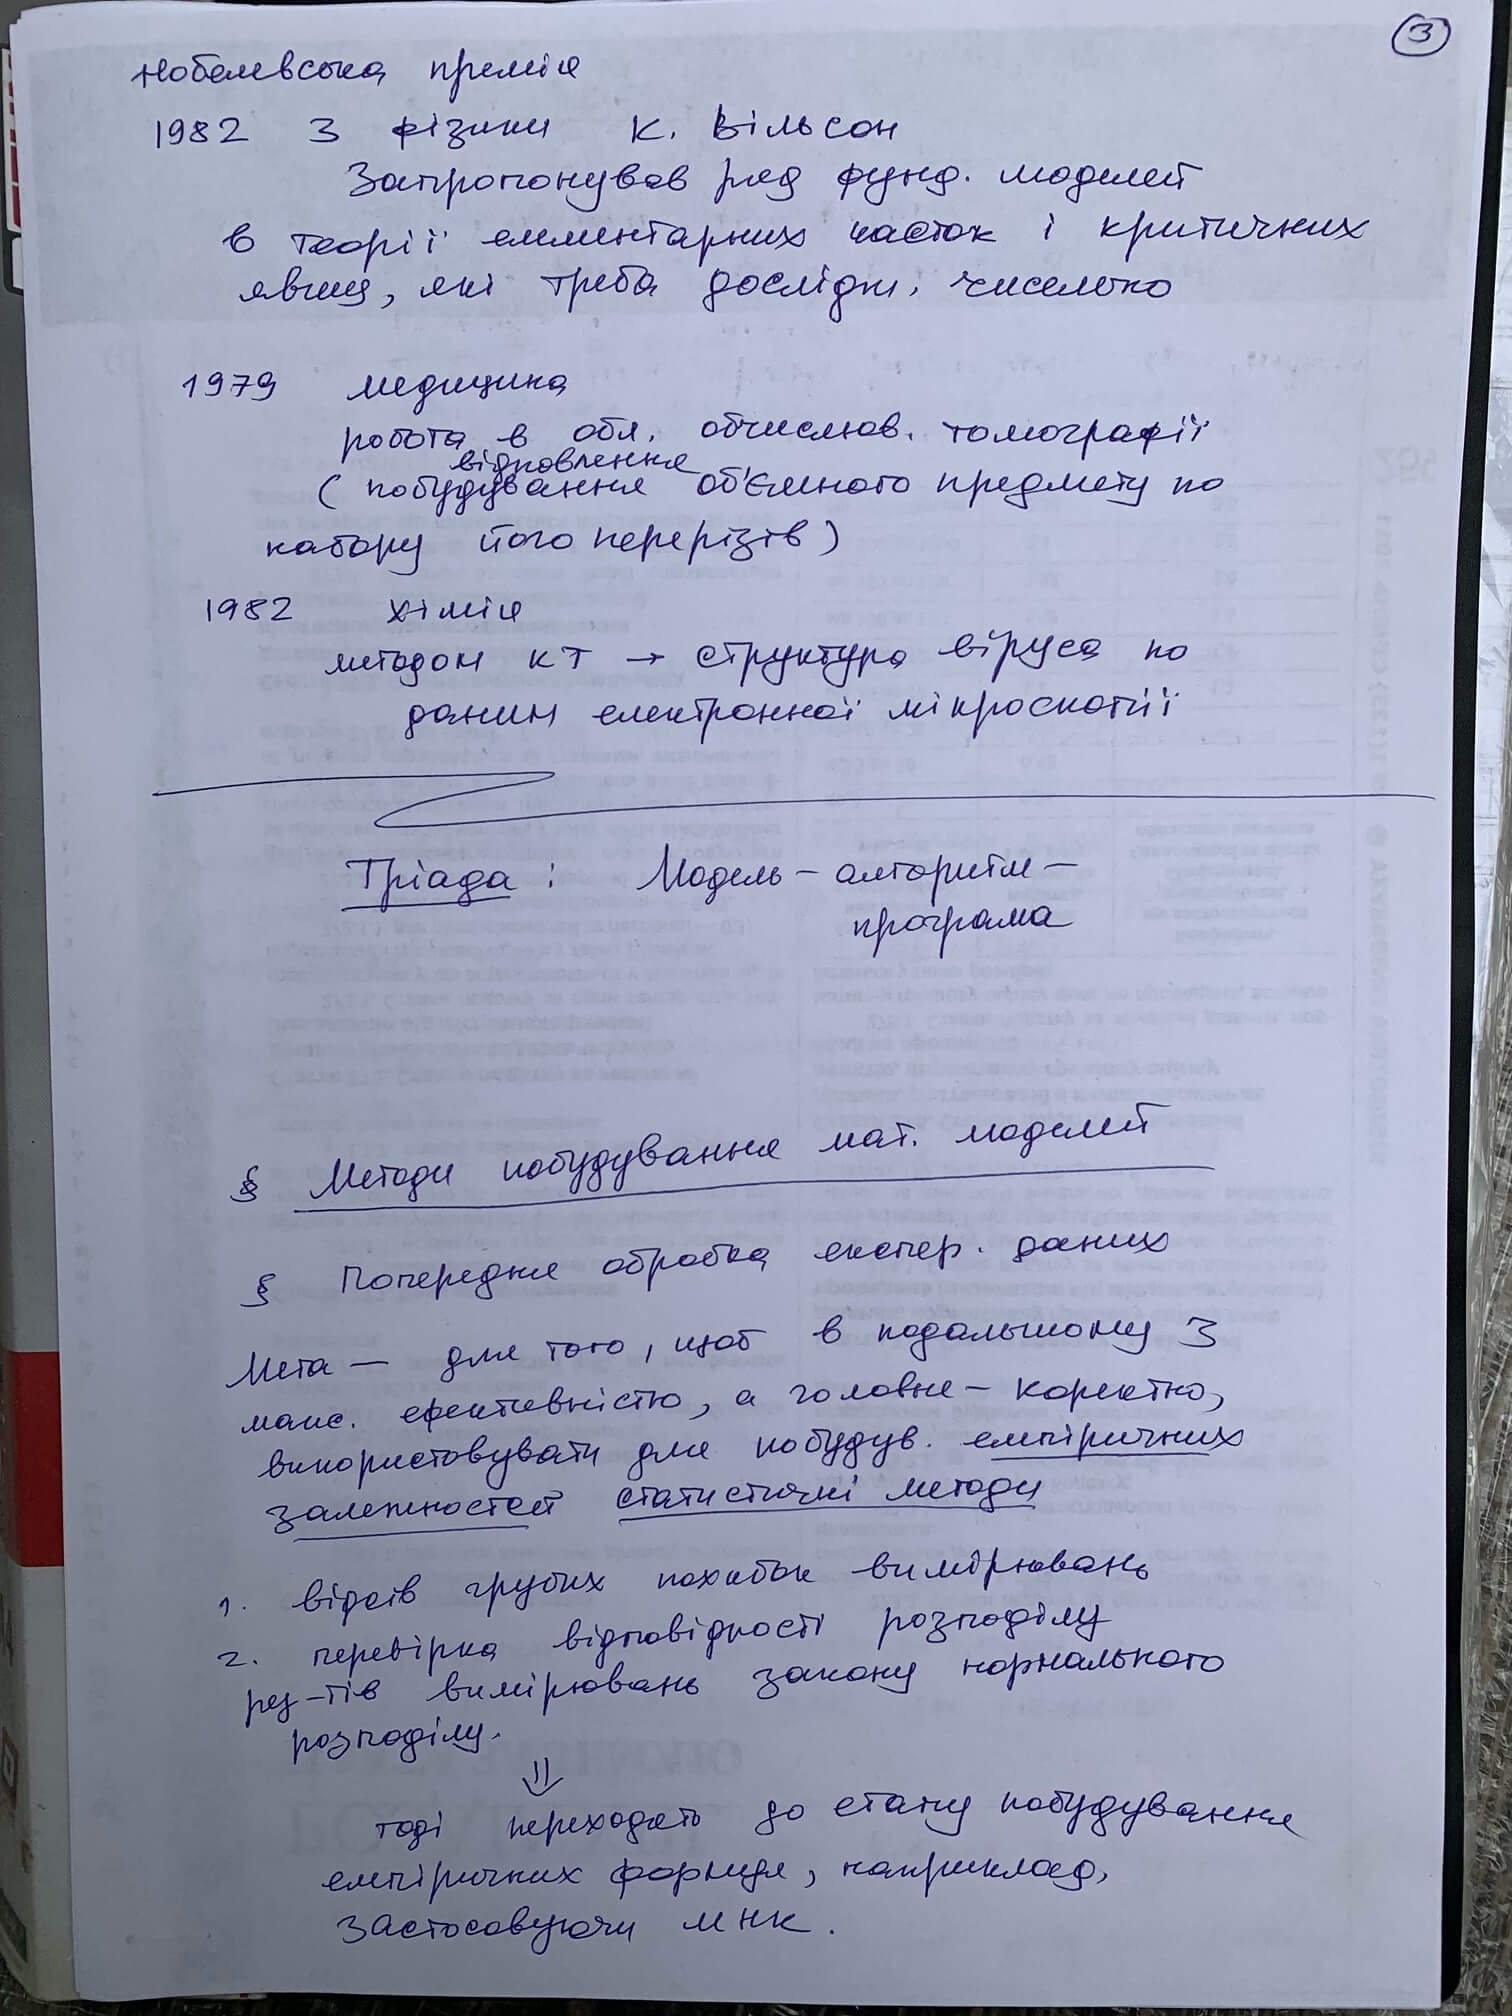 3
Нобелевська премія
1982 З фізики К. Вільсон
Запропонував ряд фунд. моделей
в теорії елементарних часток і критичних
явищ, які треба дослідж. чисельно
1979 медицина
робота в обл. обчислюв. томографії
відновлення
(побудування об'ємного предмету по
набору його перерізів)
1982 хімія
методом КТ → структура віруса по
даним електронної мікроскопії
Тріада: Модель – алгоритм –
програма
§ Методи побудування мат. моделей
§ Попередня обробка експер. даних
Мета – для того, щоб в подальшому з
макс. ефективністю, а головне – коректно,
використовувати для побудув. емпіричних
залежностей статистичні методи
1. відсів грубих похибок вимірювань
2. перевірка відповідності розподілу
рез-тів вимірювань закону нормального
розподілу.
⇓
тоді переходять до етапу побудування
емпіричних формул, наприклад,
застосовуючи МНК.